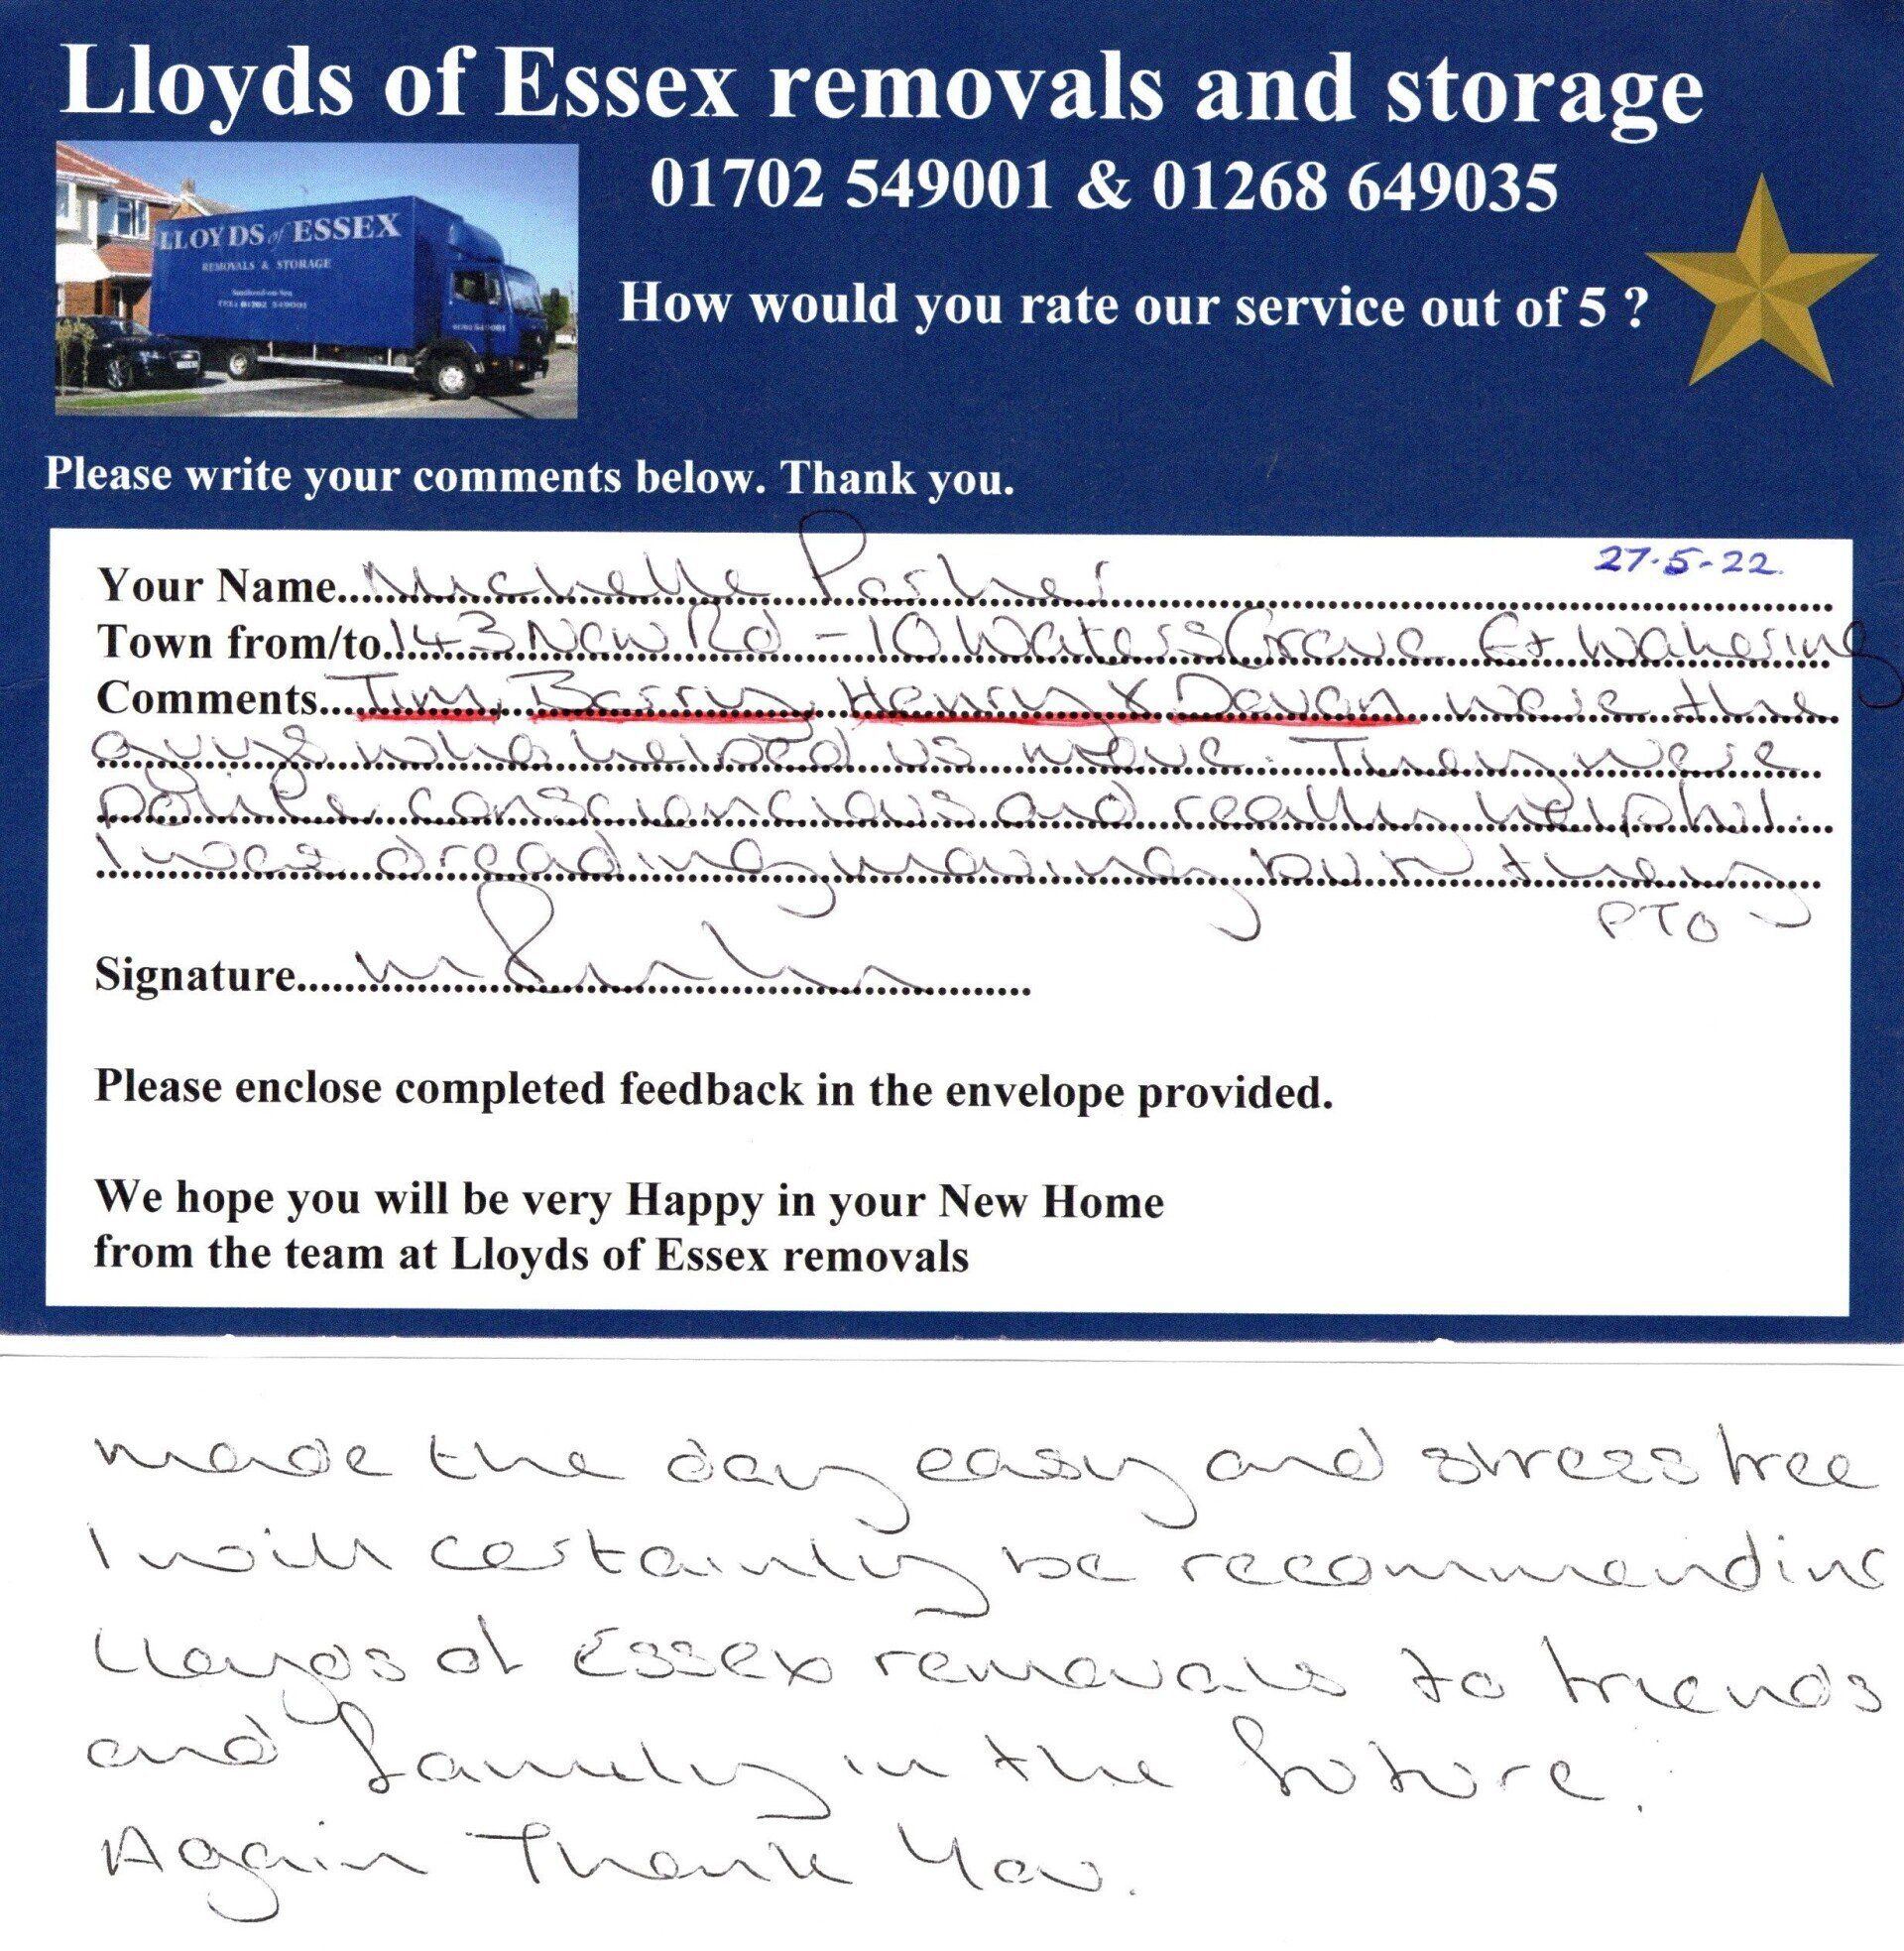 Lloyds of Essex removals and storage
01702 549001 & 01268 649035
LLOYDS of ESSEX
REMOVALS & STORAGE
Southend-on-Sea
TEL: 01702 549001
01702 549001
How would you rate our service out of 5 ?
Please write your comments below. Thank you.
27-5-22.
Your Name....Michelle Parker
Town from/to.143 New Rd - 10 Waters Grove Gt Wakering
Comments....Tim, Barry, Henry & Devan were the
guys who helped us move. They were
polite, consciencious and really helpful.
I was dreading moving but they
PTO
Signature....M Parker
Please enclose completed feedback in the envelope provided.
We hope you will be very Happy in your New Home
from the team at Lloyds of Essex removals
made the day easy and stress free
I will certainly be recommending
Lloyds of Essex removals to friends
and family in the future.
Again Thank You.